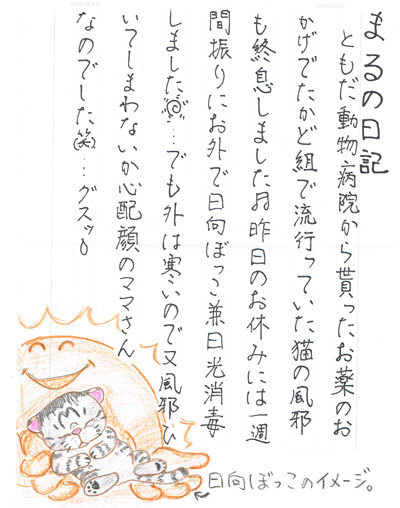 まるの日記
ともだ動物病院から貰ったお薬のお
かげでたかど組で流行っていた猫の風邪
も終息しました♫昨日のお休みには一週
間振りにお外で日向ぼっこ兼日光消毒
しました…でも外は寒いので又風邪ひ
いてしまわないか心配顔のママさん
なのでした(笑)…グスッ
日向ぼっこのイメージ。